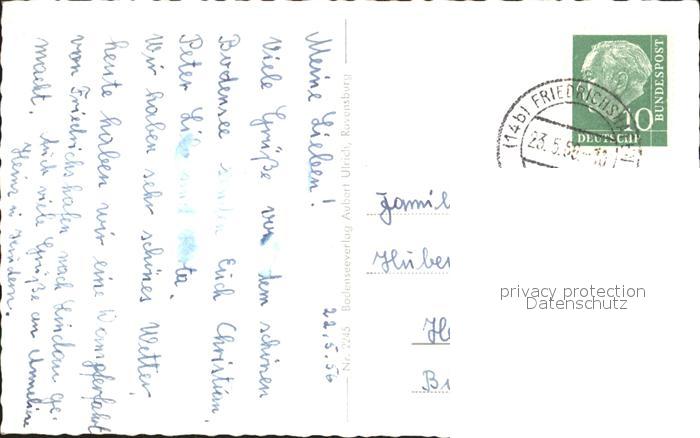 22.5.56
Meine Lieben!
Viele Grüße von dem schönen
Bodensee senden Euch Christian,
Peter, und
Wir haben sehr schönes Wetter,
heute haben wir eine Dampferfahrt
von Friedrichshafen nach Lindau ge-
macht. Auch viele Grüße an Annelise
Heinz u.
Nr. 7245 Bodenseeverlag Aubert Ulrich, Ravensburg
(14b) FRIEDRICHSHA
23.5.56
10
DEUTSCHE
BUNDESPOST
Famil
Huber
Ha
privacy protection
Datenschutz